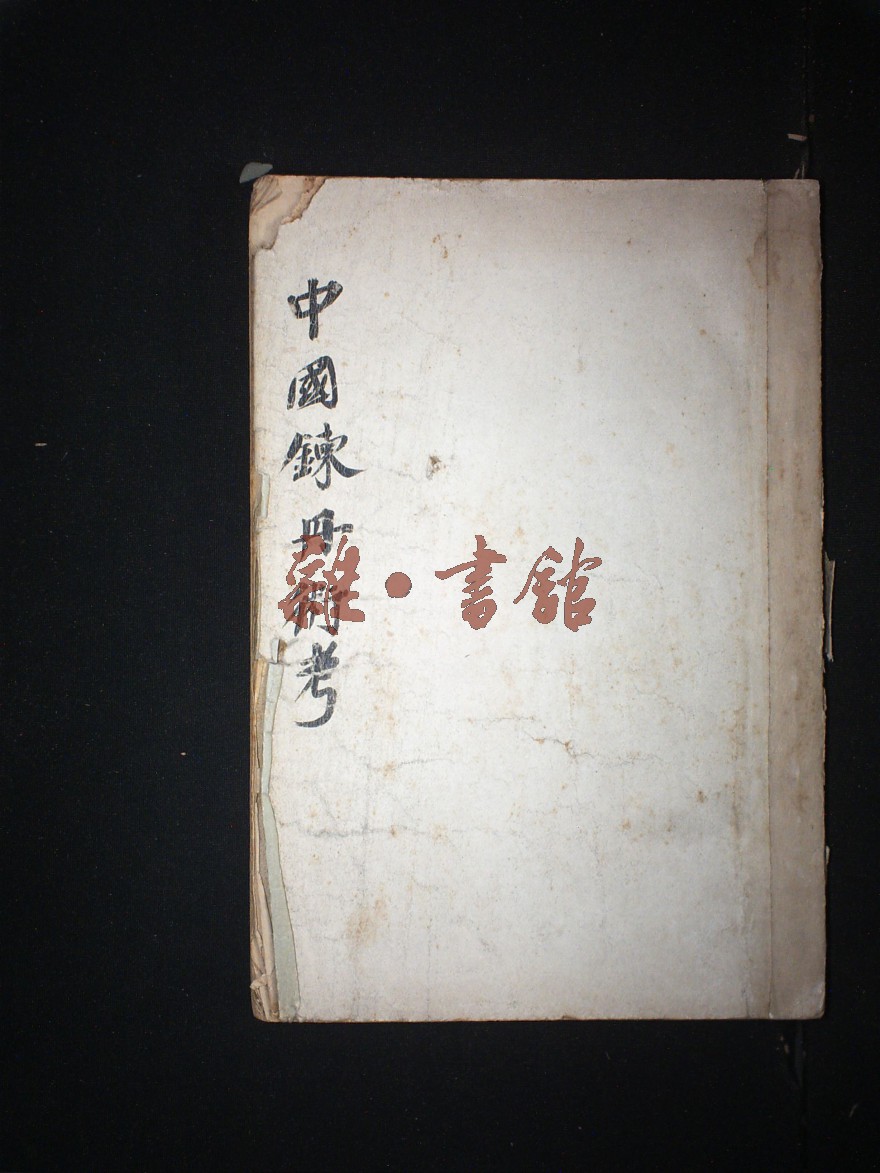 中國鍊丹術考
雜·書館